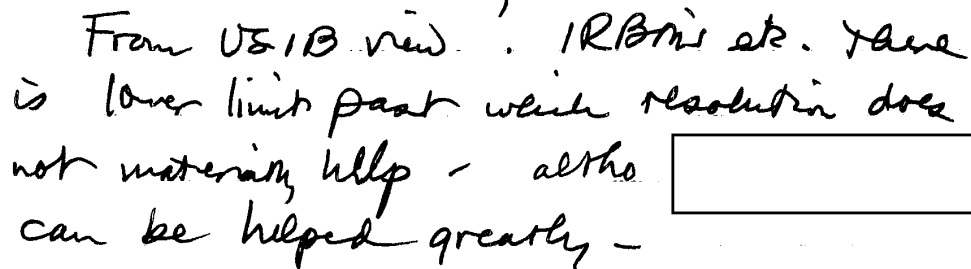 From USIB view. IRBM's etc. There
is lower limit past which resolution does
not materially help - altho
can be helped greatly -